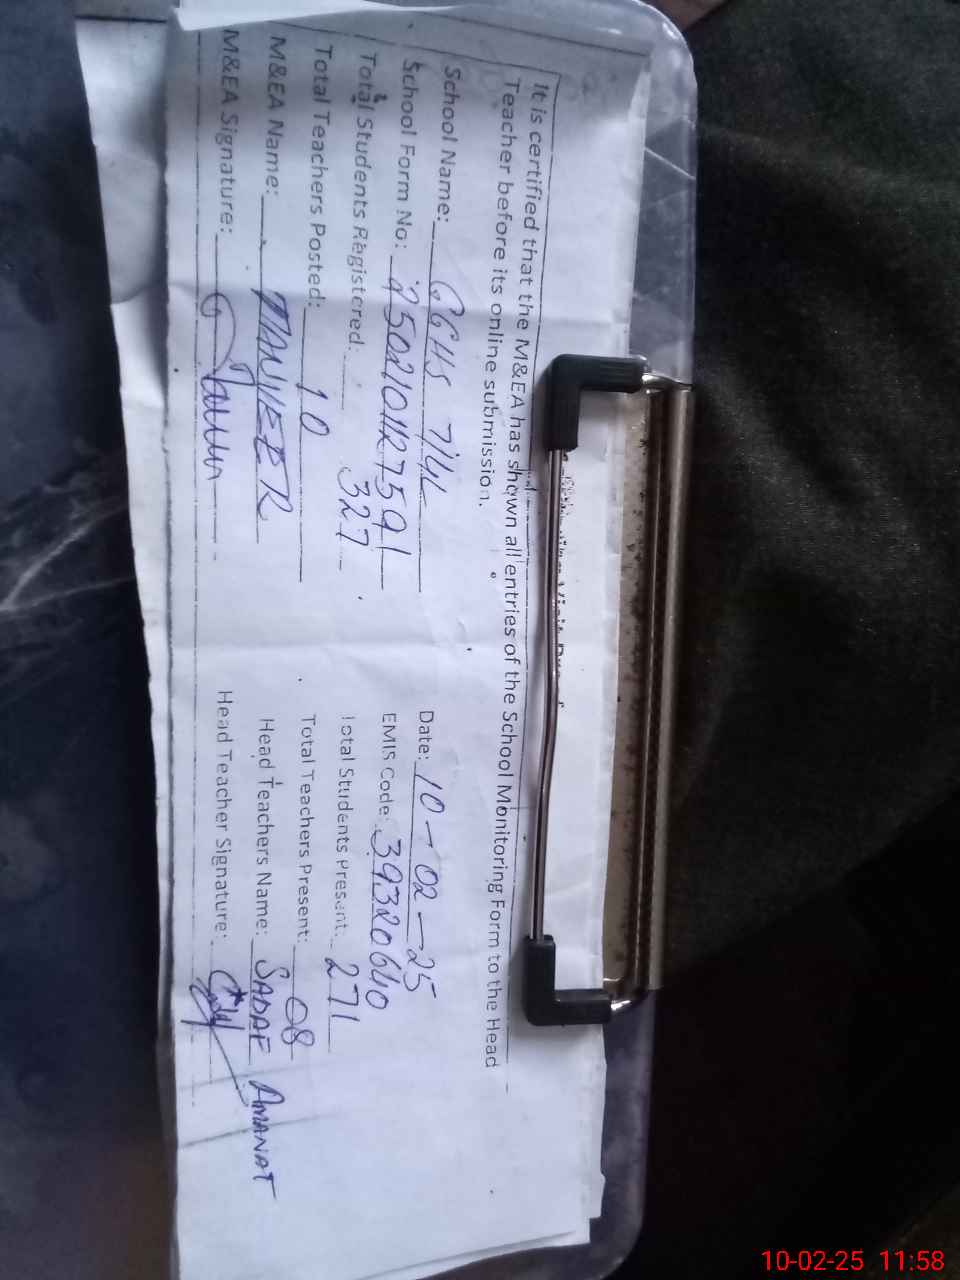 It is certified that the M&EA has shown all entries of the School Monitoring Form to the Head
Teacher before its online submission.
School Name: GGHS 7/4L Date: 10-02-25
School Form No: 2502101127591 EMIS Code: 39320640
Total Students Registered: 327 Total Students Present: 271
Total Teachers Posted: 10 Total Teachers Present: 08
M&EA Name: TANVEER Head Teachers Name: SADAF AMANAT
M&EA Signature: Head Teacher Signature:
10-02-25 11:58